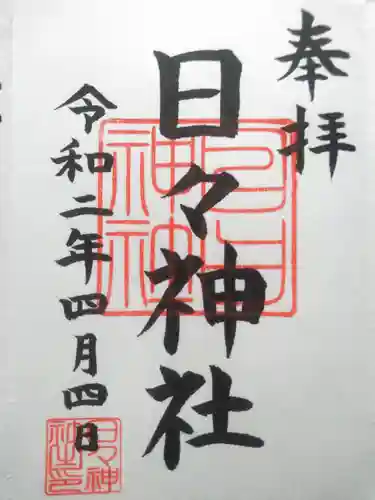 奉拝
日々神社
令和二年四月四日